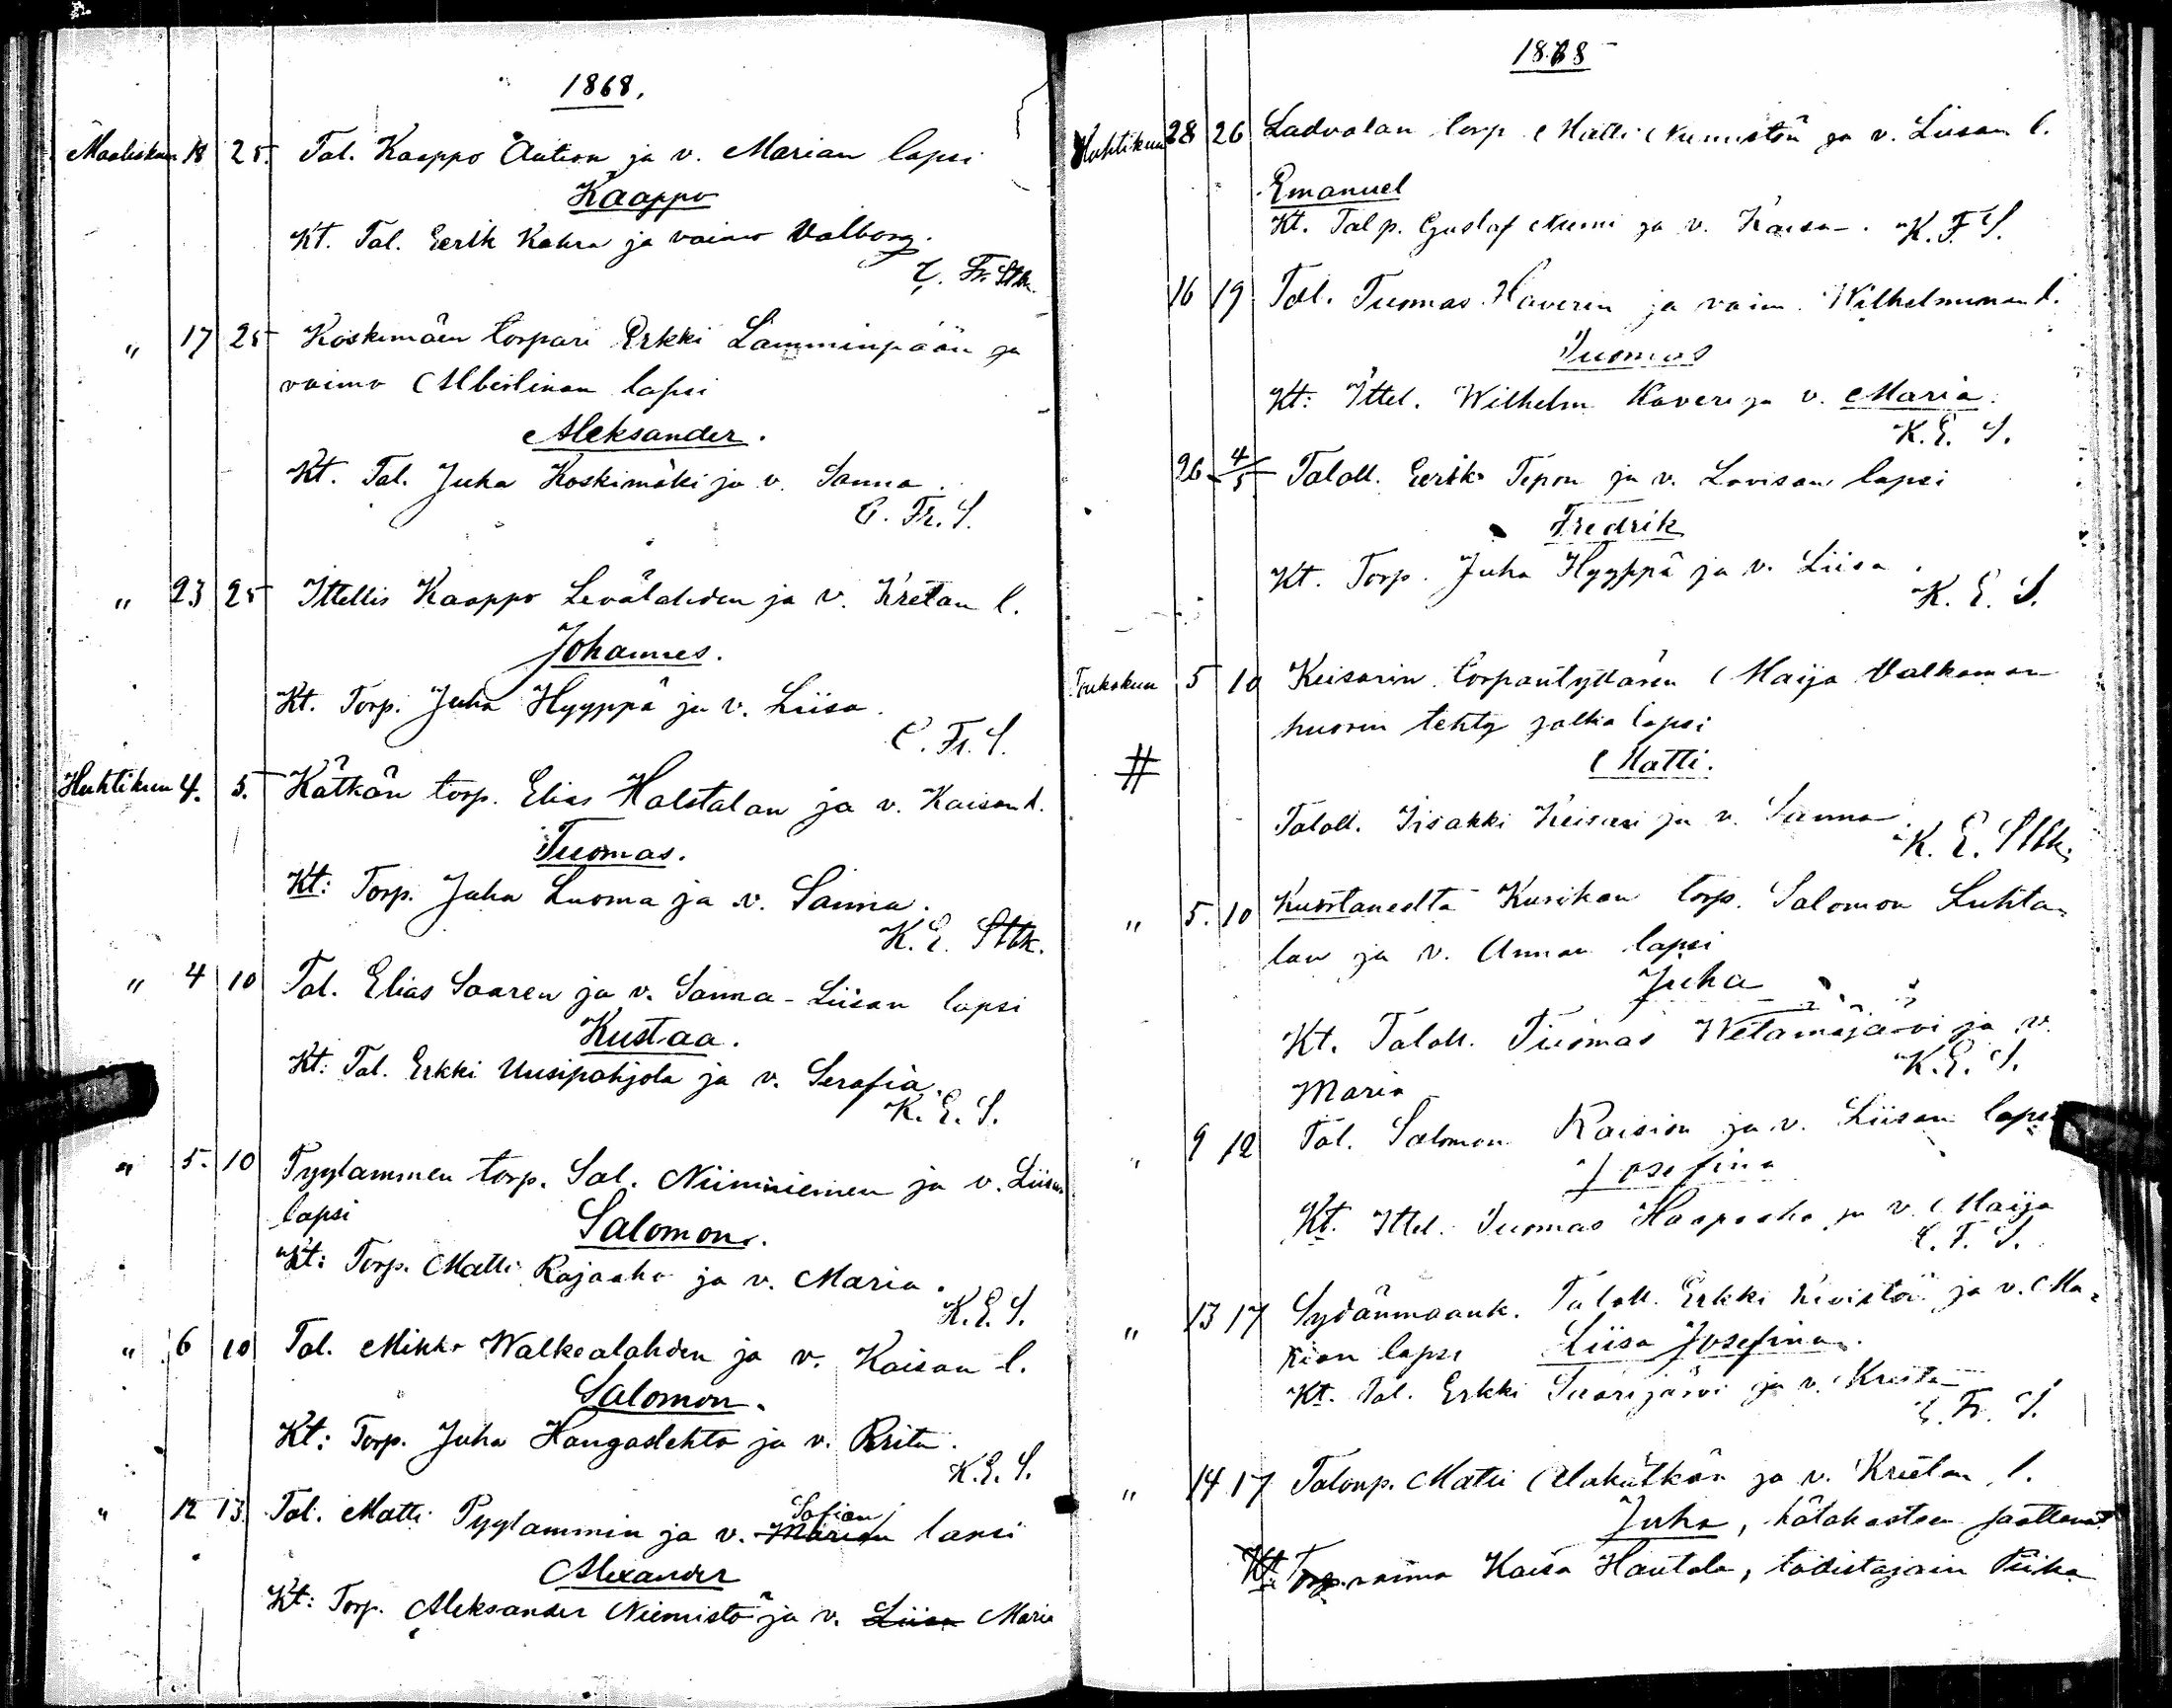 1868.
Maaliskuu 18 25. Tal. Kaappo Aution ja v. Marian lapsi
Kaappo
Kt. Tal. Eerik Kahra ja vaimo Valborg.
C. Fr. Stk.
" 17 25 Koskimäen torpari Erkki Lamminpään ja
vaimo Albertinan lapsi
Aleksander.
Kt. Tal. Juha Koskimäki ja v. Sanna.
C. Fr. S.
" 23 25 Ittellis Kaappo Levälahden ja v. Kretan l.
Johannes.
Kt. Torp. Juha Hyyppä ja v. Liisa.
C. Fr. S.
Huhtikuu 4. 5. Kätkän torp. Elias Halstalan ja v. Kaisan l.
Tuomas.
Kt: Torp. Juha Luoma ja v. Sanna.
K. E. Stk.
" 4 10 Tal. Elias Saaren ja v. Sanna-Liisan lapsi
Kustaa.
Kt: Tal. Erkki Uusipohjola ja v. Serafia.
K. E. S.
" 5. 10 Pyylammen torp. Sal. Niiminiemen ja v. Liisan
lapsi
Salomon.
Kt: Torp. Matti Rajaaho ja v. Maria.
K. E. S.
" 6 10 Tal. Mikko Walkealahden ja v. Kaisan l.
Salomon.
Kt: Torp. Juha Hangaslehto ja v. Brita.
K. E. S.
" 12 13. Tal. Matti Pyylammin ja v. Marian Sofian lapsi
Alexander
Kt: Torp. Aleksander Niemistö ja v. Liisa Maria
1868
Huhtikuu 28 26 Ladvalan torp. Matti Nurmistön ja v. Liisan l.
Emanuel
Kt. Talp. Gustaf Nurmi ja v. Kaisa. K. F. S.
16 19 Tal. Tuomas Haverin ja vaim. Wilhelminan l.
Tuomas
Kt: Ittel. Wilhelm Kaveri ja v. Maria.
K. E. S.
26 4/5 Taloll. Eerik Tepon ja v. Lovisan lapsi
Fredrik
Kt. Torp. Juha Hyyppä ja v. Liisa.
K. E. S.
Toukokuu 5 10 Keisarin torpantyttären Maija Valkaman
huorin tehty jalka lapsi
# Matti.
Taloll. Iisakki Keisari ja v. Sanna.
K. E. Stk.
" 5. 10 Kuortaneelta Kurikan torp. Salomon Luhta-
lan ja v. Annan lapsi
Juha
Kt. Taloll. Tuomas Wetämäjärvi ja v.
Maria
K. E. S.
" 9 12 Tal. Salomon Raision ja v. Liisan lapsi
Josefina
Kt. Ittel. Tuomas Haapaaho ja v. Maija
C. F. S.
" 13 17 Sydänmaank. Taloll. Erkki Kivistön ja v. Ma-
rian lapsi Liisa Josefina.
Kt. Tal. Erkki Suorijärvi ja v. Kreeta
C. Fr. S.
" 14 17 Talonp. Matti Alakätkän ja v. Kreetan l.
Juha, hätäkasteen saattanut
Kt: Torp. vaimo Kaisa Hautala, todistajain Piika